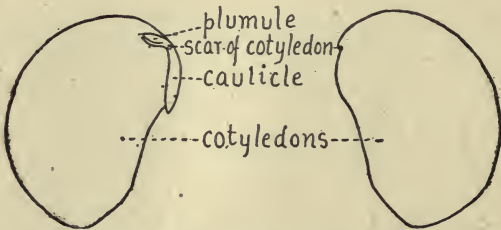 plumule
scar of cotyledon
caulicle
cotyledons